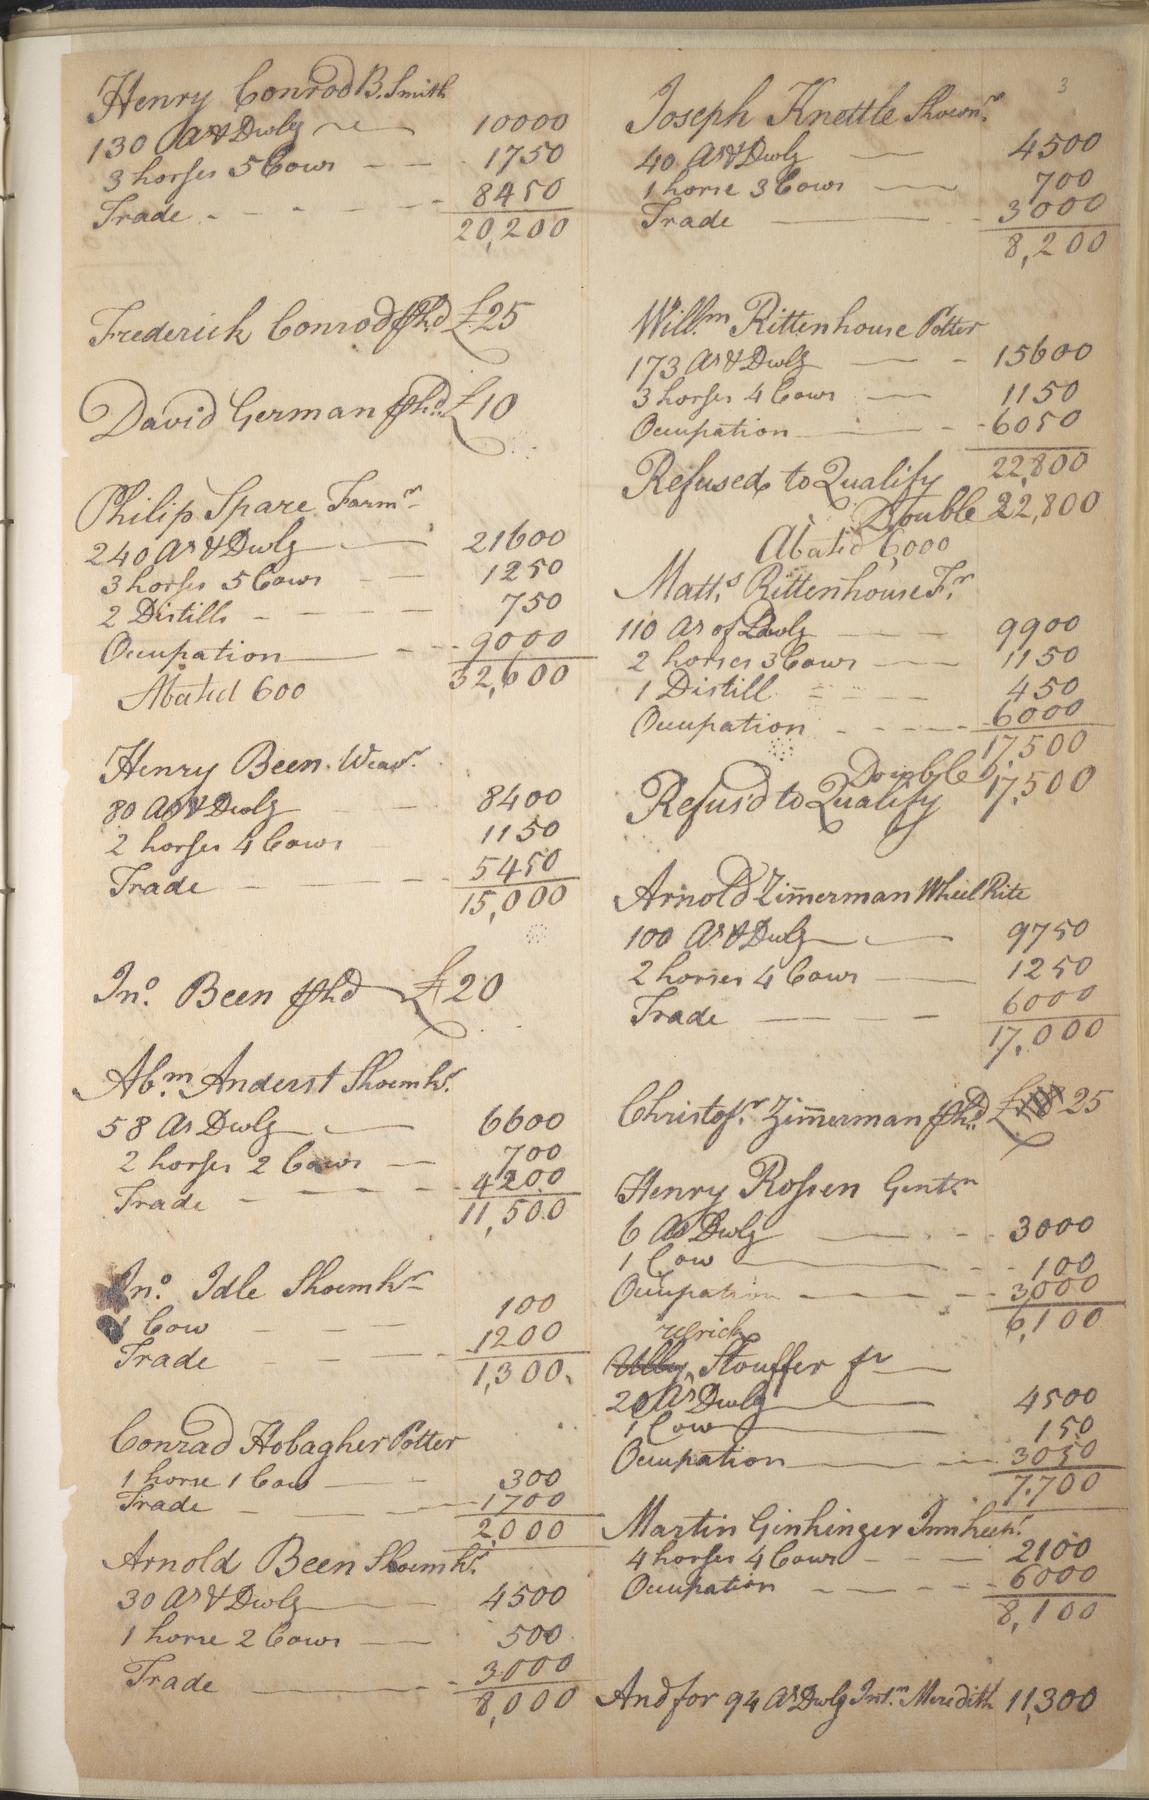 Henry Conrod B. Smith
130 As & Dwlg 10000
3 horses 5 Cows 1750
Trade 8450
20,200
Frederick Conrod pr hd £25
David German pr hd £10
Philip Spare Farmr
240 As & Dwlg 21600
3 horses 5 Cows 1250
2 Distills 750
Occupation 9000
32,600
Abated 600
Henry Been Weavr
80 As & Dwlg 8400
2 horses 4 Cows 1150
Trade 5450
15,000
Jno. Been pr hd £20
Abm. Anderst Shoemkr.
58 As Dwlg 6600
2 horses 2 Cows 700
Trade 4200
11,500
Jno. Idle Shoemkr
1 Cow 100
Trade 1200
1,300
Conrad Hobagher Potter
1 horse 1 Cow 300
Trade 1700
2,000
Arnold Been Shoemkr.
30 As & Dwlg 4500
1 horse 2 Cows 500
Trade 3000
8,000
3
Joseph Knettle
40 As & Dwlg 4500
1 horse 3 Cows 700
Trade 3000
8,200
Willm Rittenhouse Potter
173 As & Dwlg 15600
3 horses 4 Cows 1150
Occupation 6050
22,800
Refused to Qualify
Double 22,800
Abated 6000
Matts. Rittenhouse Fr.
110 As of Dwlg 9900
2 horses 3 Cows 1150
1 Distill 450
Occupation 6000
17,500
Double 17,500
Refus'd to Qualify
Arnold Zim̄erman Wheel Rite
100 As & Dwlg 9750
2 horses 4 Cows 1250
Trade 6000
17,000
Christofr. Zim̄erman pr hd £25
Henry Rossen Gentn
6 As Dwlg 3000
1 Cow 100
Occupation 3000
6,100
Ulrick
Ulley Stouffer fr
20 As Dwlg 4500
1 Cow 150
Occupation 3050
7,700
Martin Ginhinger Innkeepr.
4 horses 4 Cows 2100
Occupation 6000
8,100
And for 94 As Dwlg Meredith 11,300